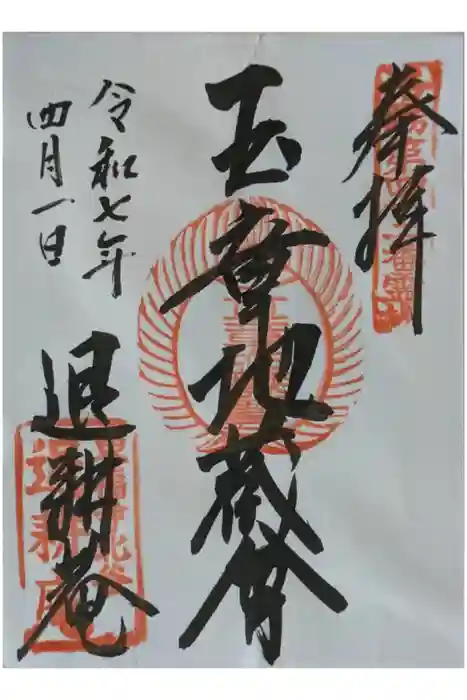 奉拝
玉章地蔵尊
令和七年
四月一日
退耕庵